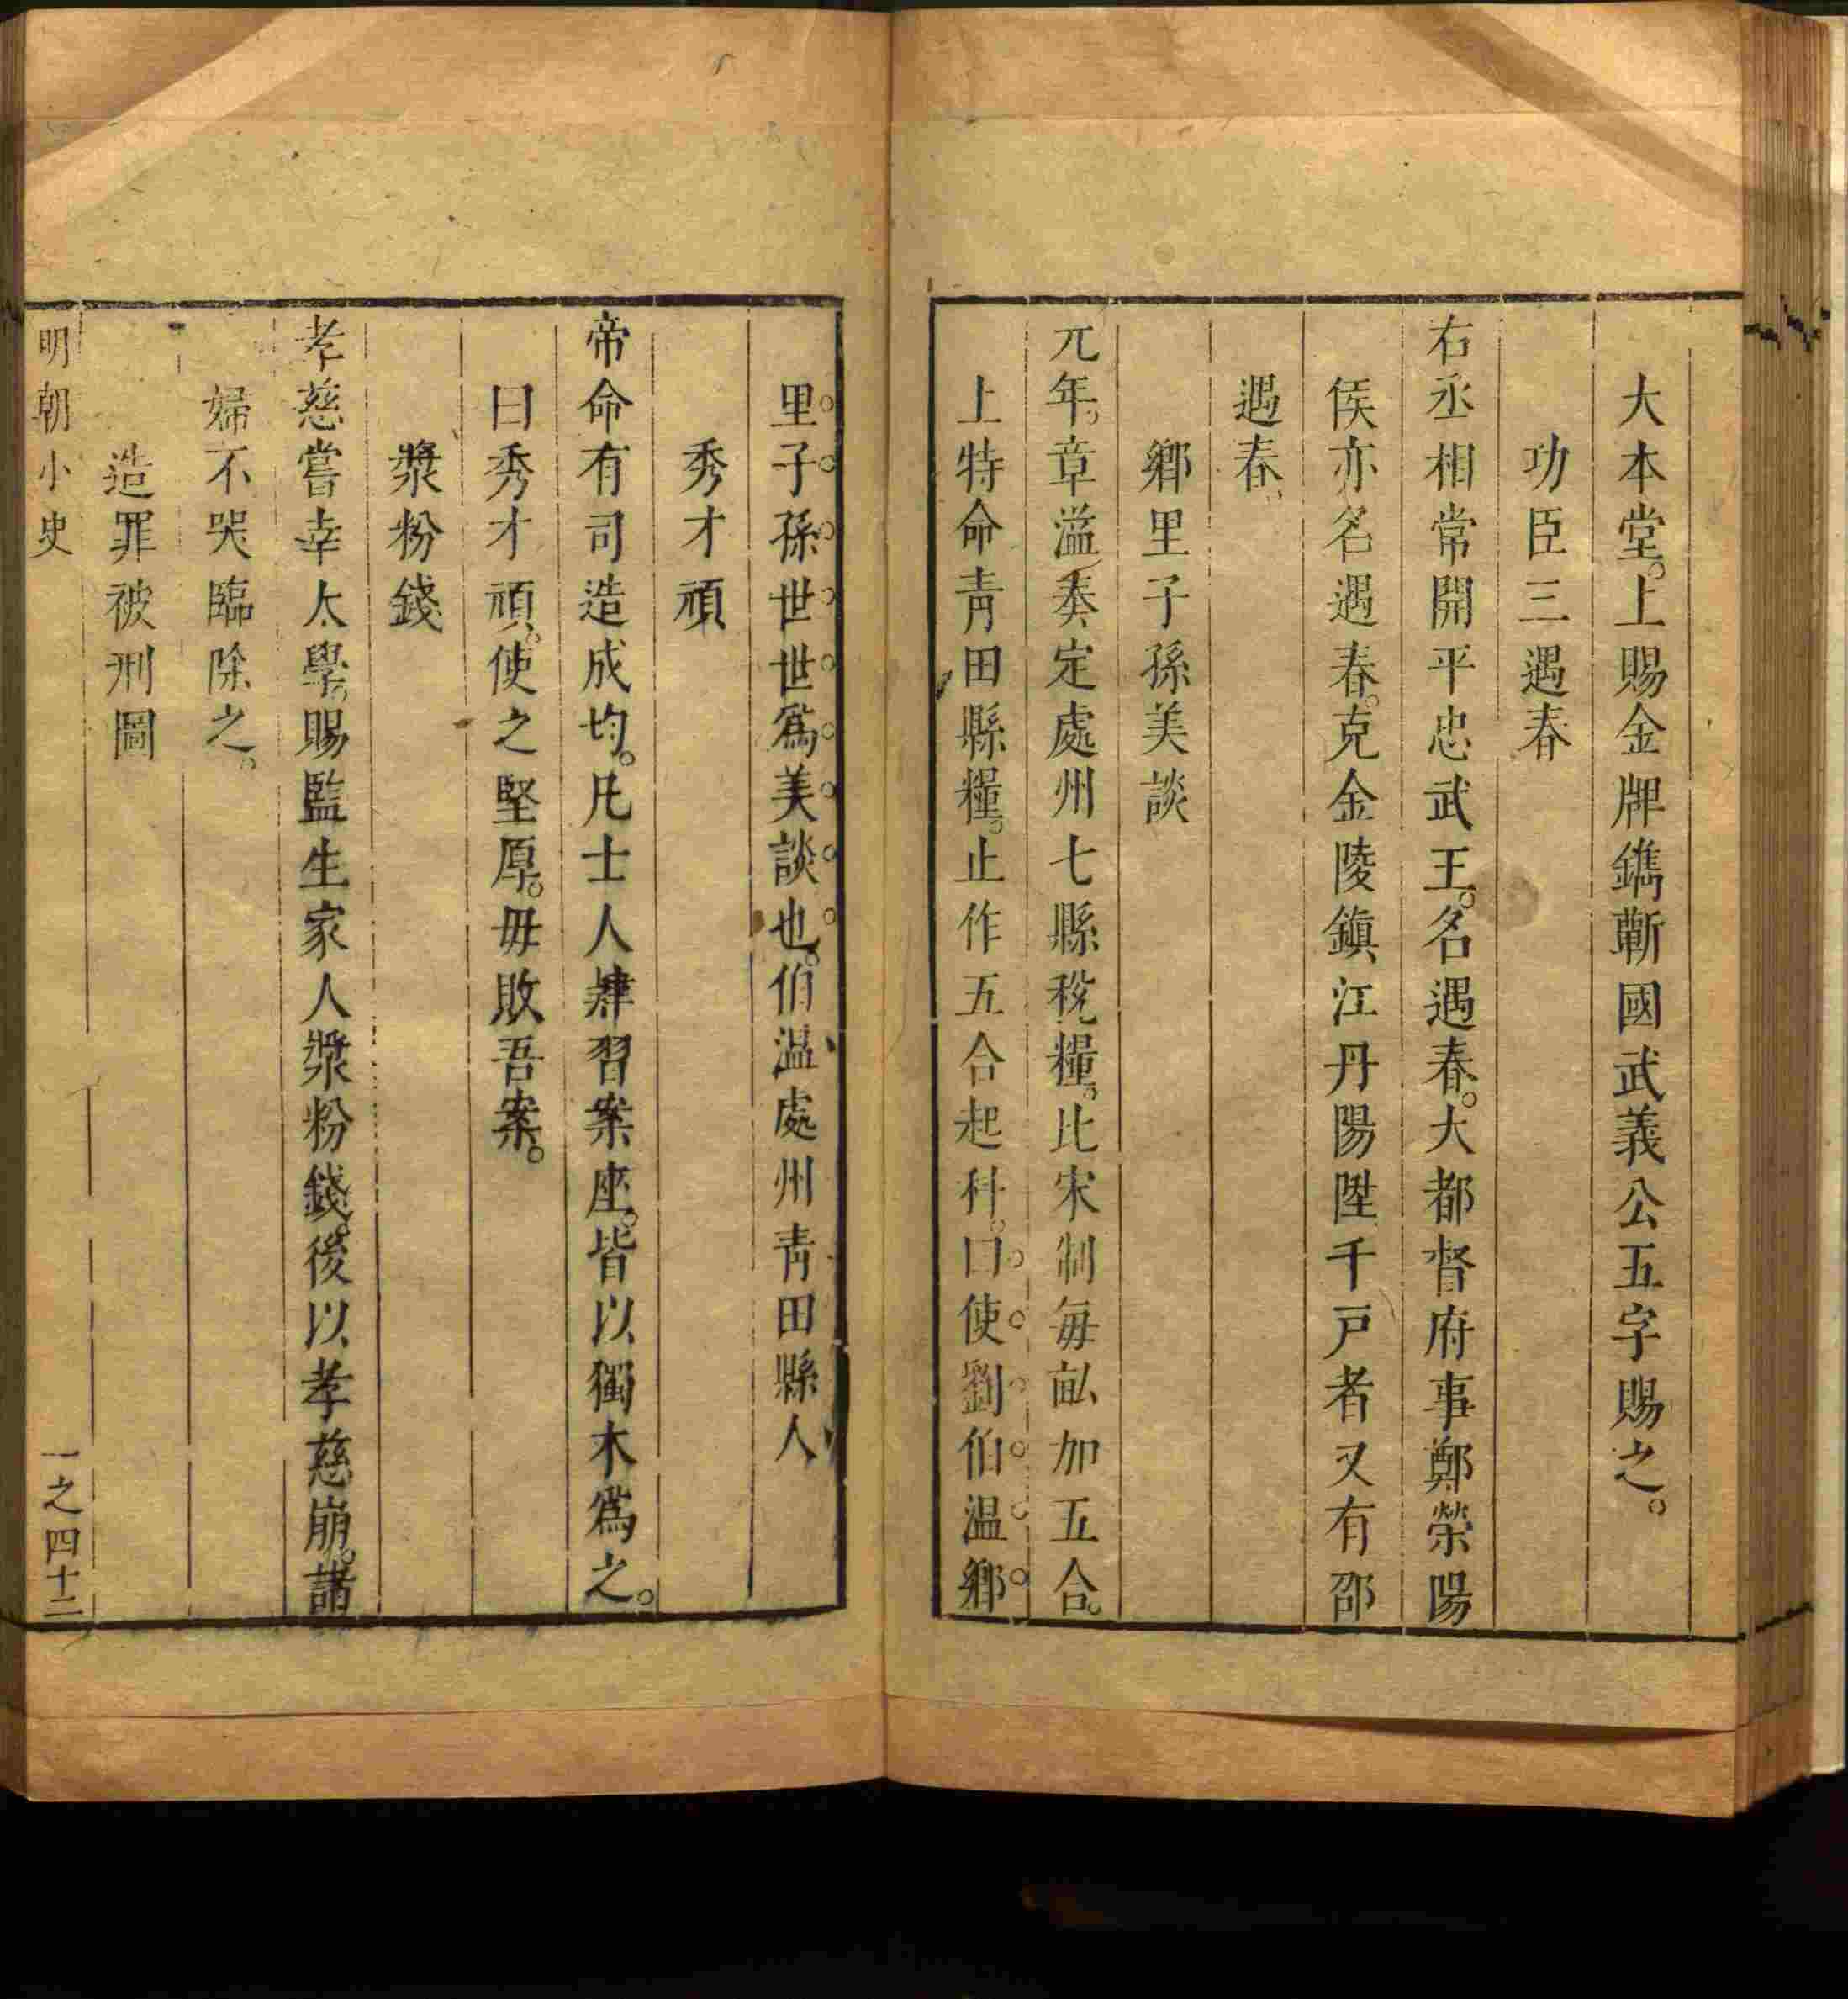 大本堂。上賜金牌鐫蘄國武義公五字賜之。
功臣三遇春
右丞相常開平忠武王。名遇春。大都督府事鄭榮陽
侯亦名遇春。克金陵鎮江丹陽陞千戸者又有邵
遇春、
鄉里子孫美談
元年。章溢奏定處州七縣稅糧。比宋制每畝加五合。
上特命青田縣糧。止作五合起科。曰使劉伯温鄉
里子孫世世爲美談也。伯温處州青田縣人
秀才頑
帝命有司造成均。凡士人肄習案座。皆以獨木爲之。
曰秀才頑。使之堅厚。毋敗吾案。
漿粉錢
孝慈嘗幸太學。賜監生家人漿粉錢。後以孝慈崩。諸
婦不哭臨除之。
造罪被刑圖
明朝小史
一之四十二